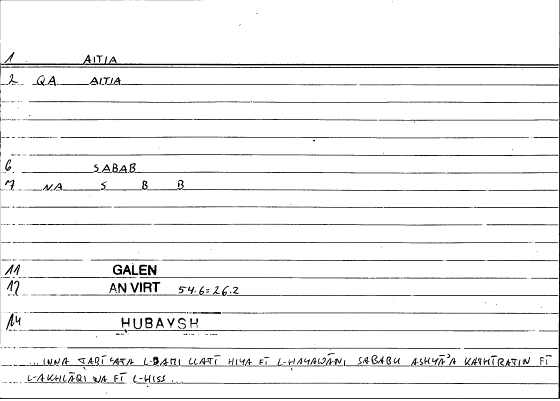 1 AITIA
2 QA AITIA
6 SABAB
7 NA S B B
11 GALEN
12 AN VIRT 54.6=26.2
14 HUBAYSH
... INNA ṬABĪ'ATA L-BADANI LLATĪ HIYA FĪ L-ḤAYAWĀNI SABABU ASHYĀ'A KATHĪRATIN FĪ
L-AKHLĀQI WA FĪ L-ḤISS ...